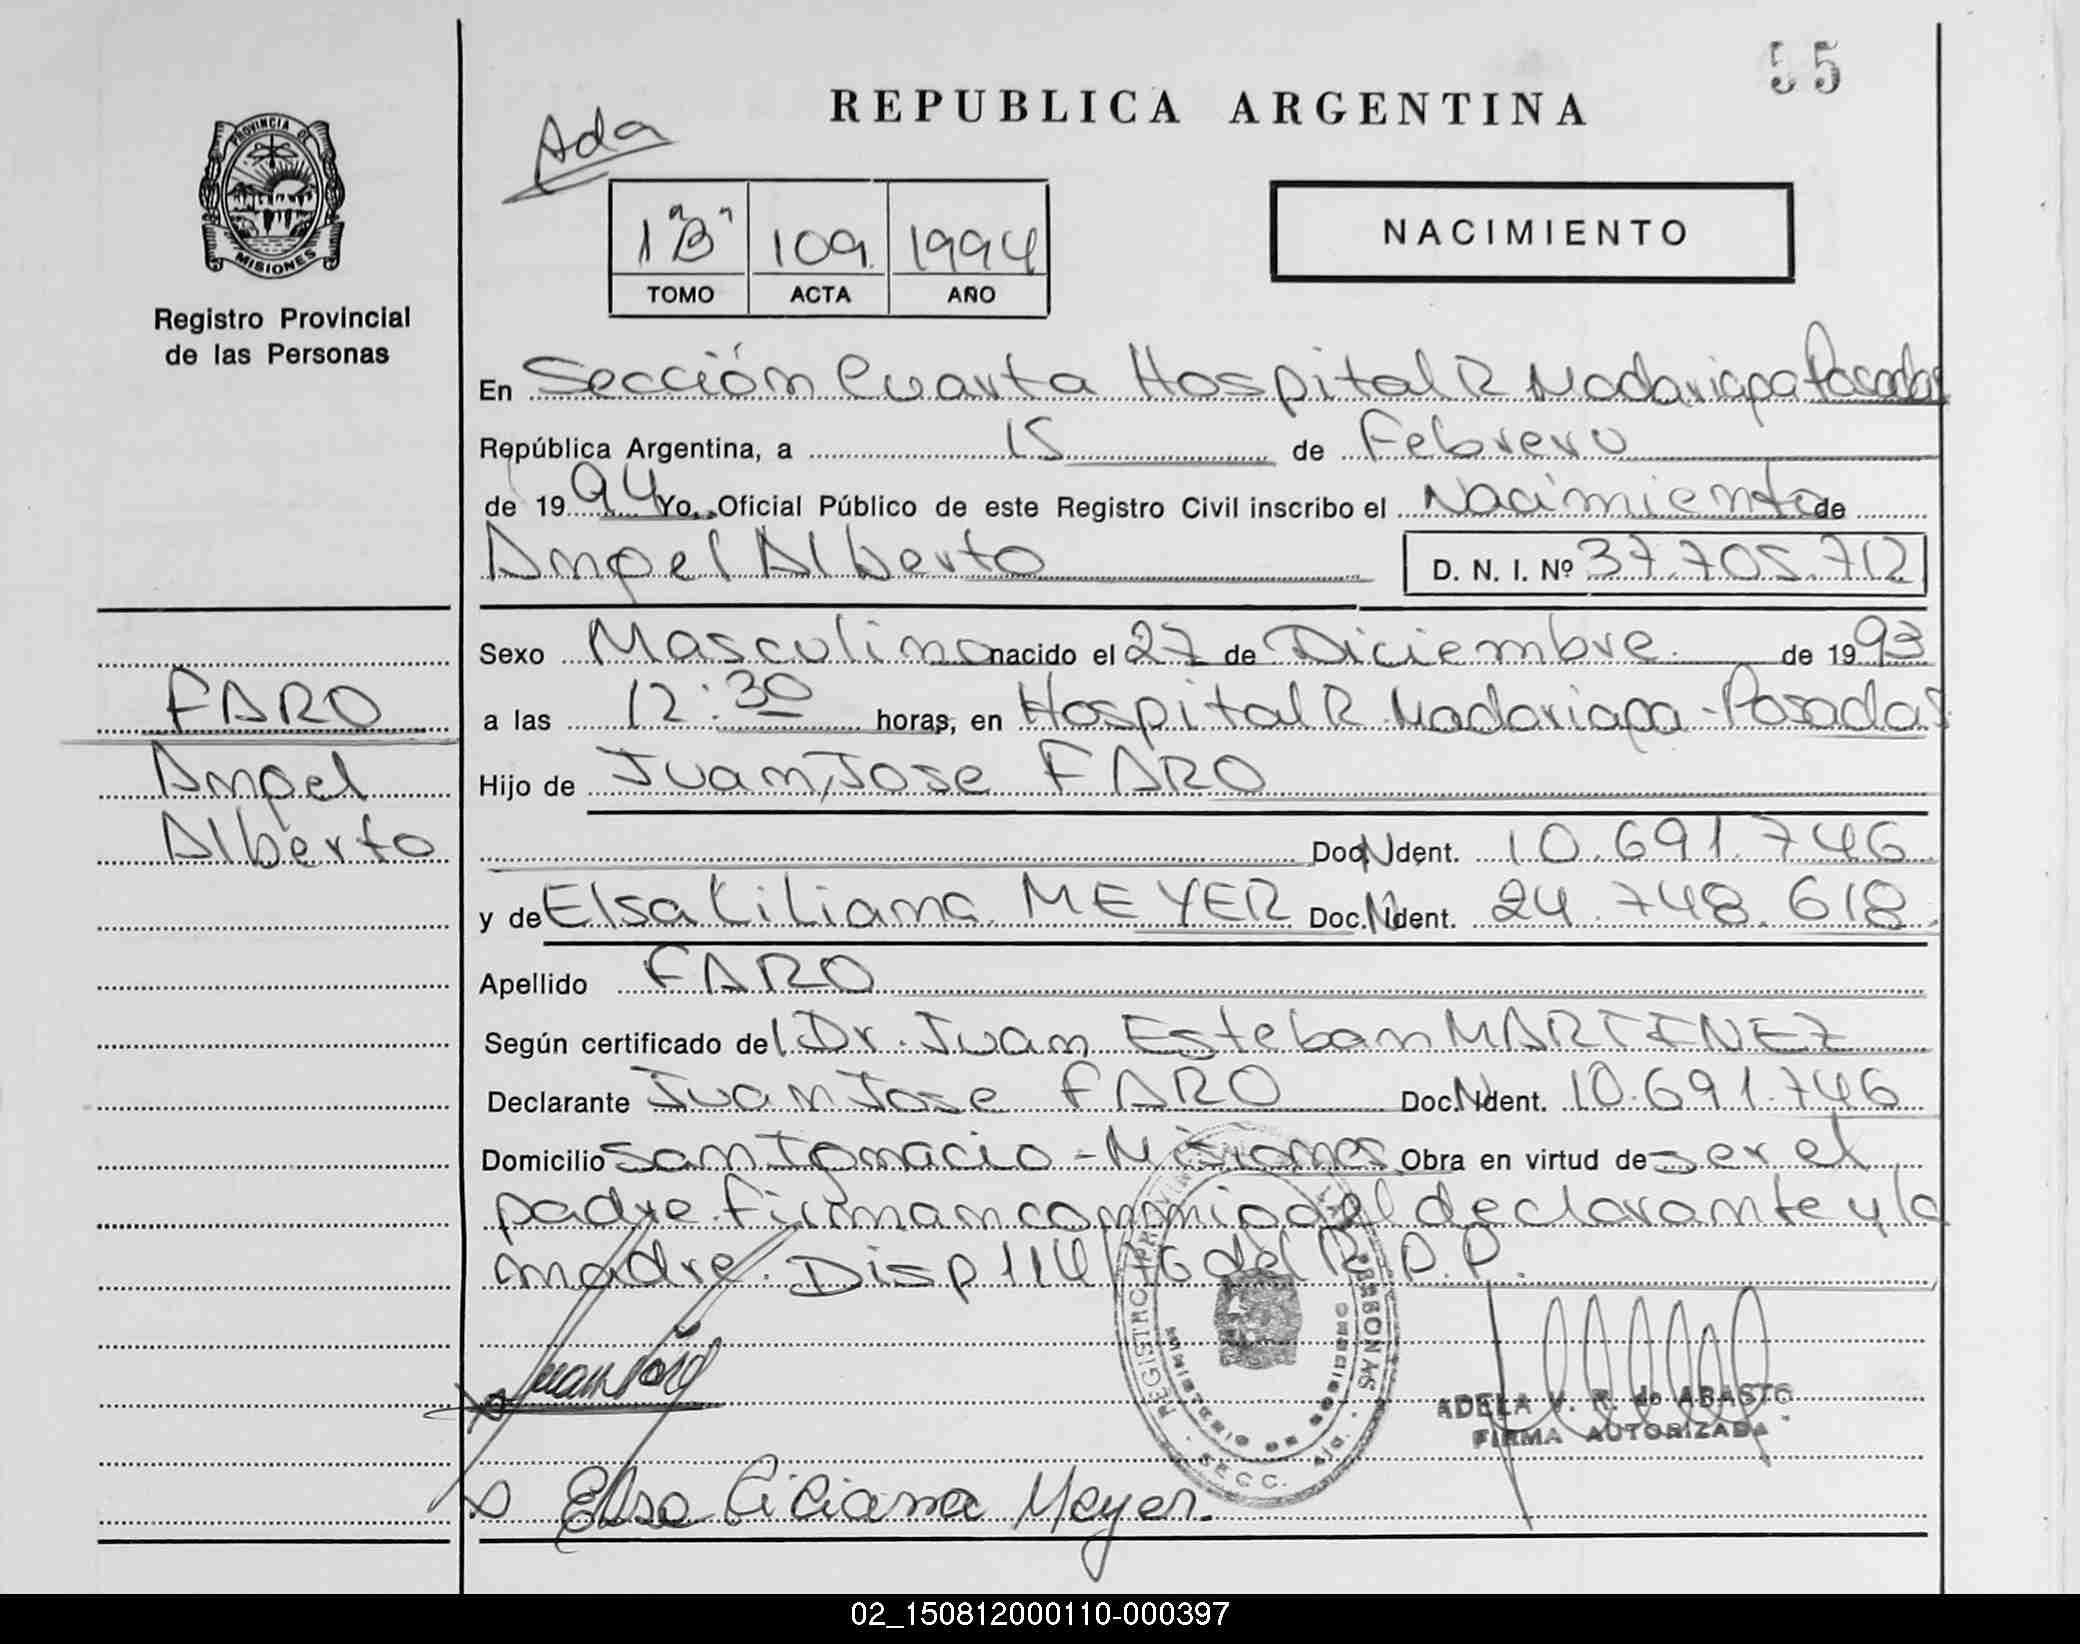 55
REPUBLICA ARGENTINA
Ada
PROVINCIA DE
MISIONES
Registro Provincial
de las Personas
1 "B" 109 1994
TOMO ACTA AÑO
NACIMIENTO
En Sección Cuarta Hospital R Madariaga Posadas
República Argentina, a 15 de Febrero
de 1994 Yo, Oficial Público de este Registro Civil inscribo el Nacimiento de
Angel Alberto D. N. I. Nº 37.705.712
Sexo Masculino nacido el 27 de Diciembre de 1993
FARO
a las 12:30 horas, en Hospital R Madariaga - Posadas
Angel
Hijo de Juan Jose FARO
Alberto
Doc. N Ident. 10.691.746
y de Elsa Liliana MEYER Doc. N Ident. 24.748.618
Apellido FARO
Según certificado del Dr. Juan Esteban MARTINEZ
Declarante Juan Jose FARO Doc. N Ident. 10.691.746
Domicilio San Ignacio - Misiones Obra en virtud de ser el
padre. Firman conmigo el declarante y la
madre. Disp 114/76 del R.P.P.
Juan José
ADELA V. R. de ABASTO
FIRMA AUTORIZADA
Elsa Liliana Meyer.
02_150812000110-000397